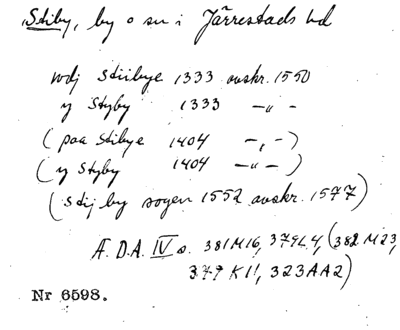 Stiby, by o sn i Järrestads hd
udj Stiibye 1333 avskr. 1550
y Styby 1333 —〃—
(paa Stibye 1404 —〃—)
(y Styby 1404 —〃—)
(Stij by sogen 1552 avskr. 1577)
Æ.D.A. IV s. 381 M16, 379 L4, (382 M23,
379 K11, 323 AA2)
Nr 6598.